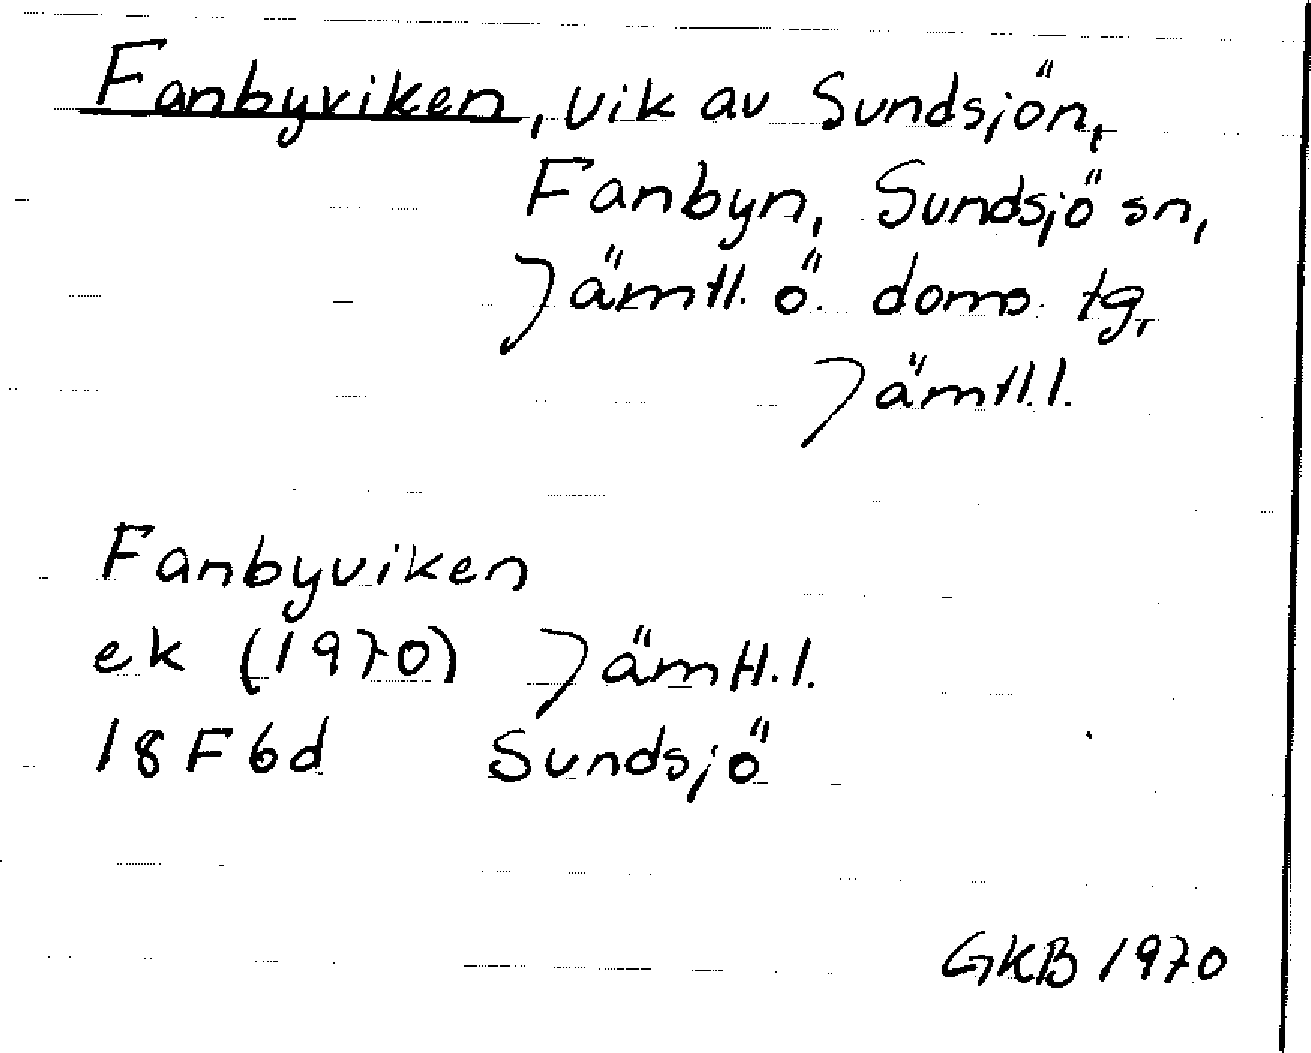 Fanbyviken, vik av Sundsjön,
Fanbyn, Sundsjö sn,
Jämtl. ö. doms. tg,
Jämtl. l.
Fanbyviken
ek (1970) Jämtl. l.
18F6d Sundsjö
GKB 1970